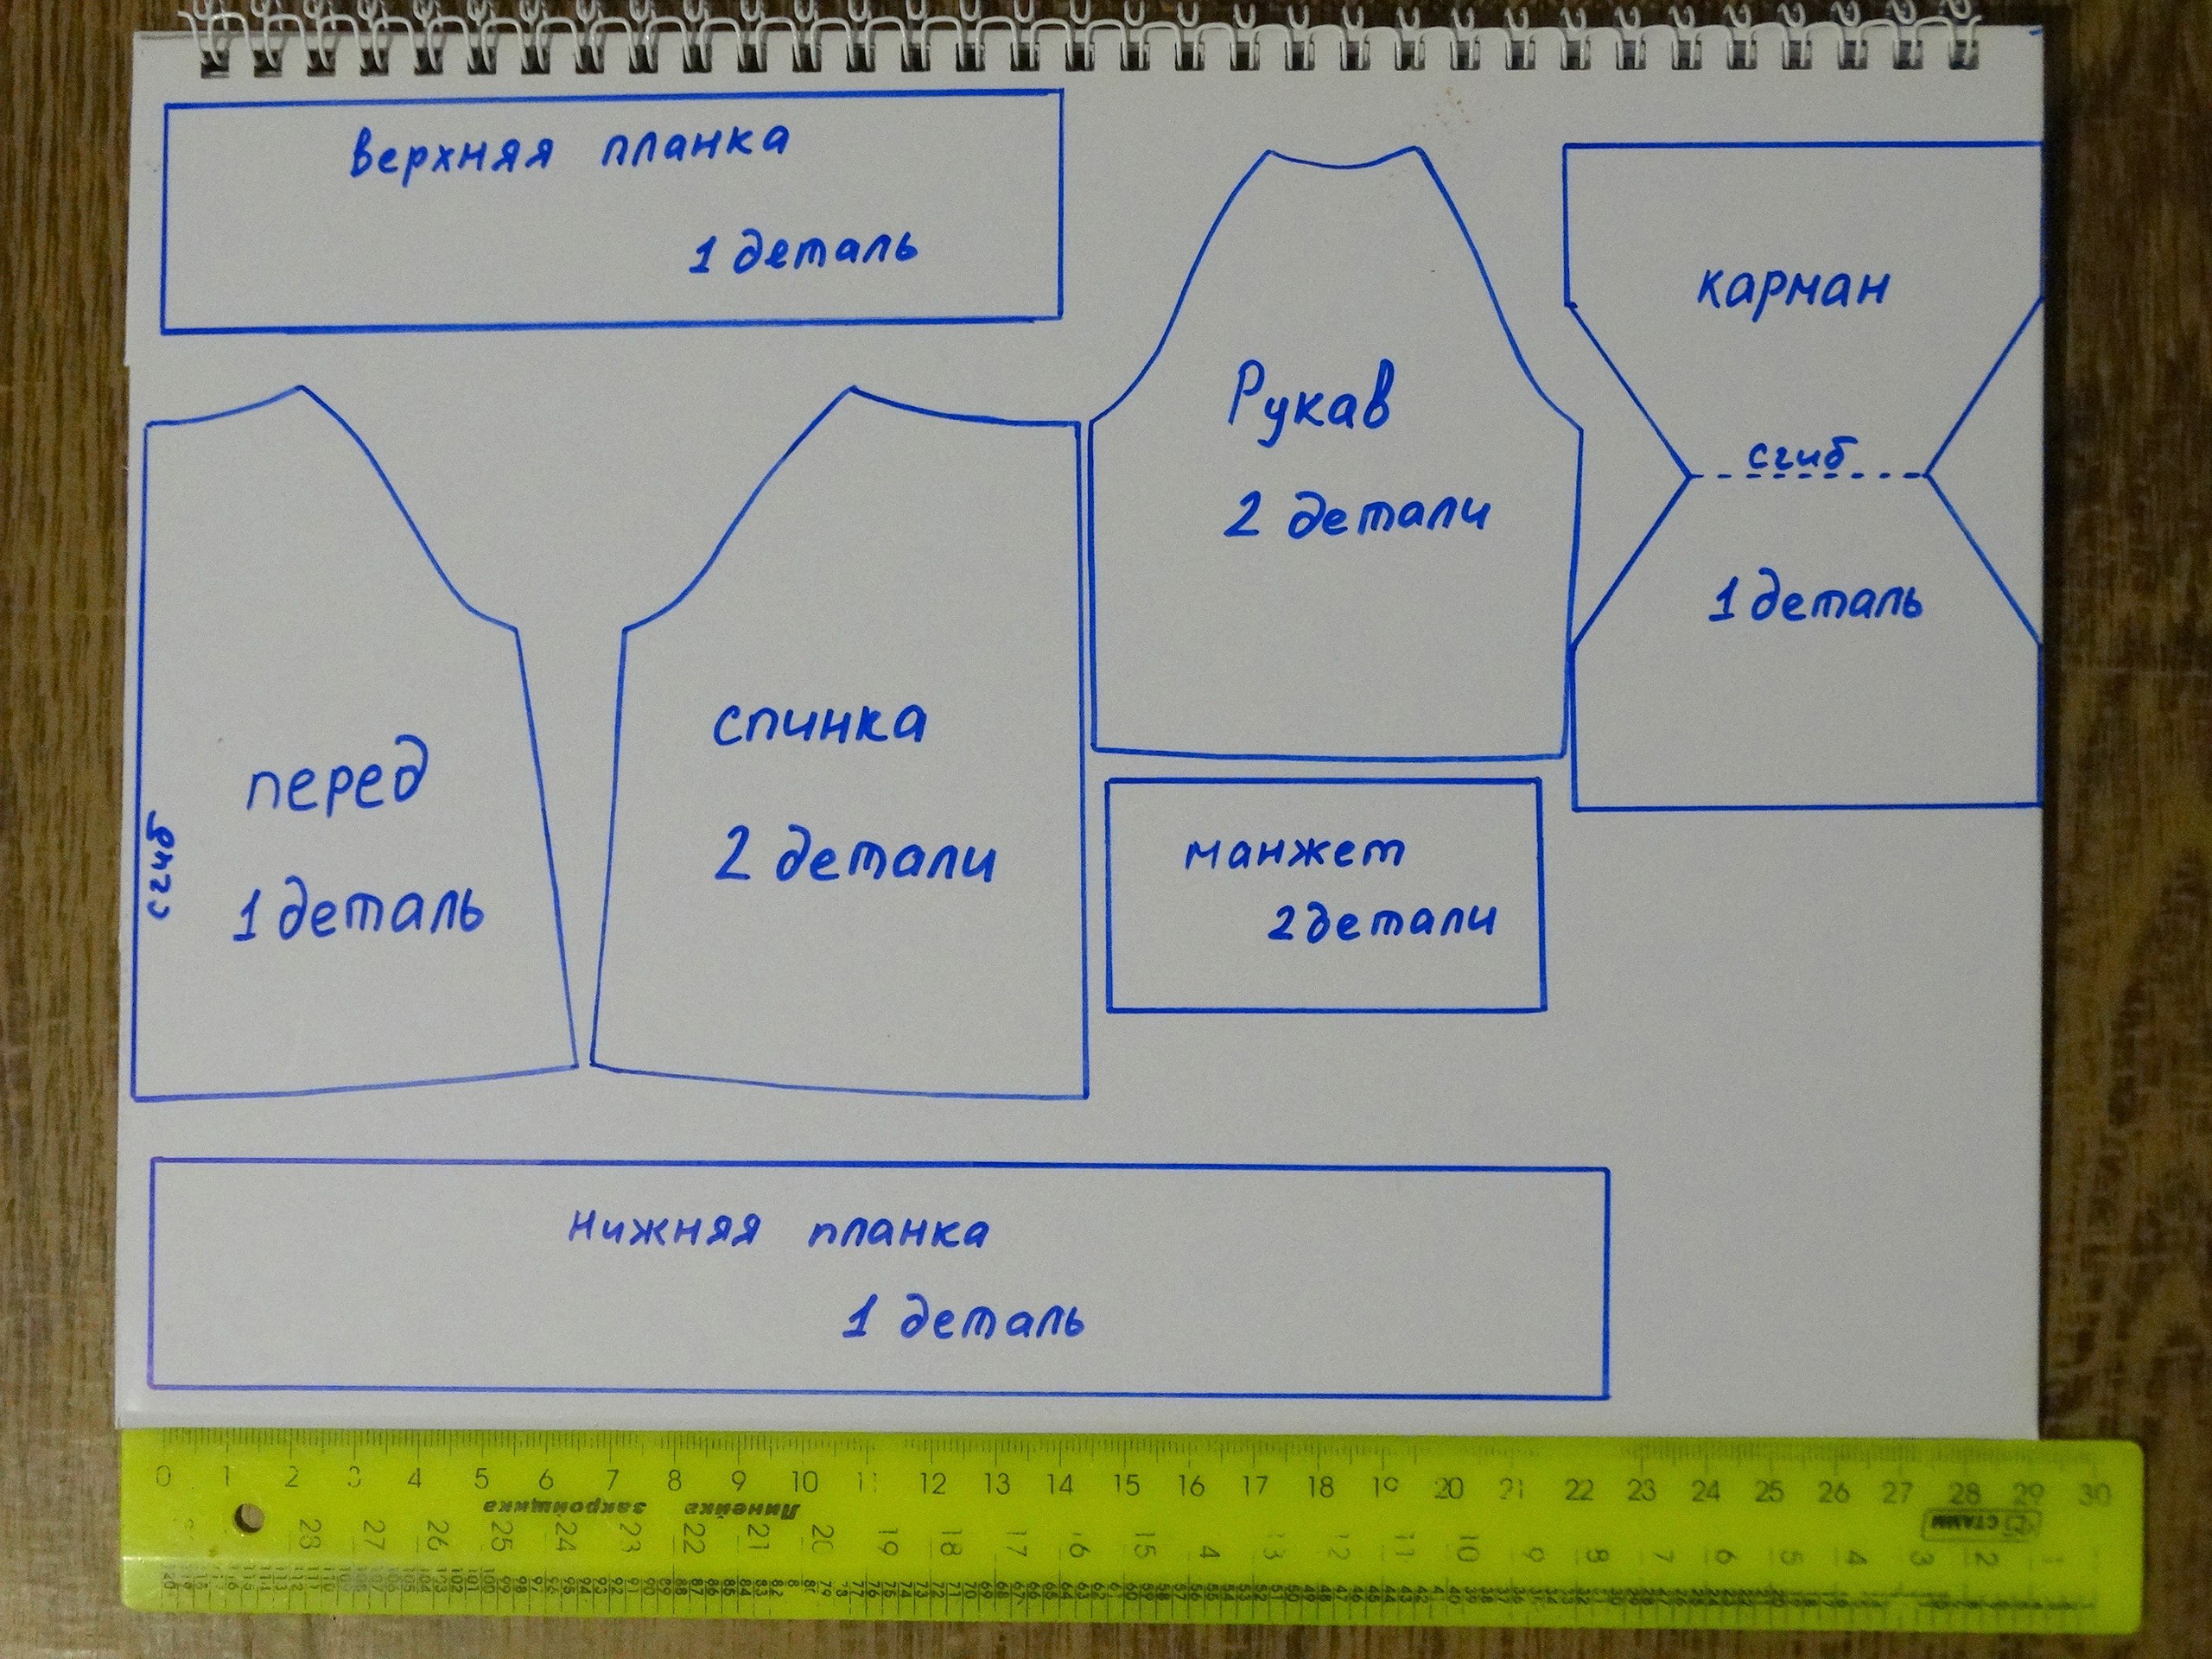 верхняя планка
1 деталь
карман
сгиб
1 деталь
Рукав
2 детали
перед
1 деталь
сгиб
спинка
2 детали
манжет
2 детали
нижняя планка
1 деталь
0 1 2 3 4 5 6 7 8 9 10 11 12 13 14 15 16 17 18 19 20 21 22 23 24 25 26 27 28 29 30
Линейка закройщика
СТАММ
28 27 26 25 24 23 22 21 20 19 18 17 16 15 14 13 12 11 10 9 8 7 6 5 4 3 2